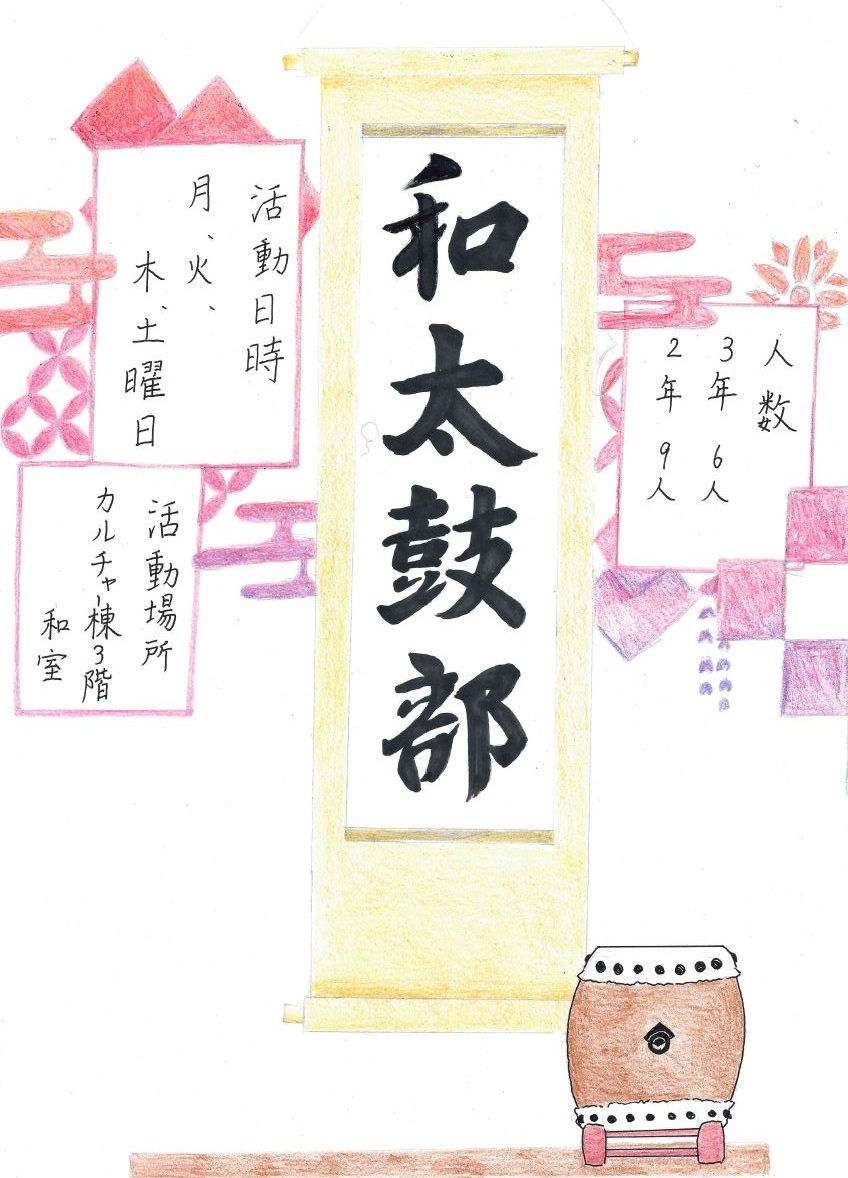 和太鼓部
活動日時
月、火、
木、土曜日
活動場所
カルチャー棟3階
和室
人数
3年 6人
2年 9人